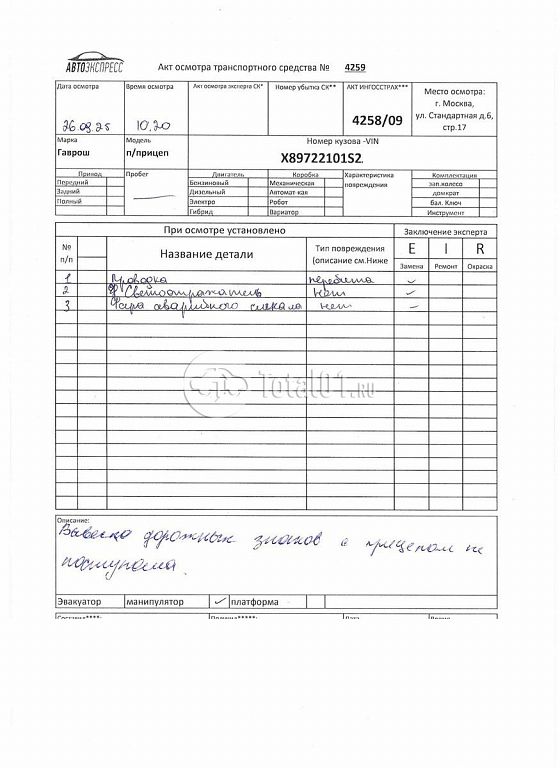 АВТОЭКСПРЕСС
Акт осмотра транспортного средства № 4259
Дата осмотра Время осмотра Акт осмотра эксперта СК* Номер убытка СК** АКТ ИНГОССТРАХ*** Место осмотра:
г. Москва,
ул. Стандартная д.6,
стр.17
26.09.25 10.20 4258/09
Марка Модель Номер кузова -VIN
Гаврош п/прицеп X89722101S2
Привод Пробег Двигатель Коробка Характеристика повреждения Комплектация
Передний Бензиновый Механическая зап.колесо
Задний Дизельный Автомат кая домкрат
Полный Электро Робот бал. Ключ
Гибрид Вариатор Инструмент
При осмотре установлено Заключение эксперта
№ п/п Название детали Тип повреждения (описание см.Ниже E I R
Замена Ремонт Окраска
1 Проводка перебита ✓
2 Светоотражатель нет ✓
3 Фара аварийного сигнала нет
Total01.RU
Описание:
Вывеска дорожных знаков с прицепом не
поступала.
Эвакуатор манипулятор ✓ платформа